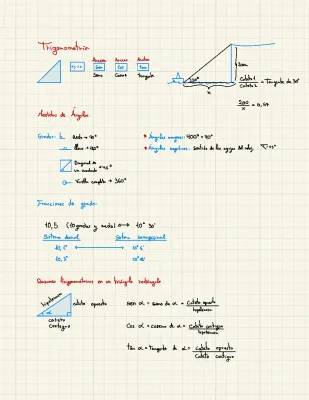 Trigonometría
Sin
Cos
Tan
Seno
Coseno
Tangente
200m
30°
x
Cateto 1
Cateto 2
= Tangente de 30°
200
x
= 0,57
Medidas de Ángulos
Grados:
Recto → 90°
Llano → 180°
Diagonal de
un cuadrado → 45°
Vuelta completa → 360°
Ángulos mayores: 400° = 40°
Ángulos negativos: Sentido de las agujas del reloj.
Fracciones de grado:
10,5 (10 grados y medio) ↔ 10° 30'
Sistema decimal
Sistema sexagesimal
10,1°
10° 6'
Razones trigonométricas en un triángulo rectángulo
hipotenusa
cateto opuesto
α
cateto
contiguo
sen α = seno de α = Cateto opuesto
hipotenusa
Cos α = coseno de α = Cateto contiguo
hipotenusa
tan α = tangente de α = Cateto opuesto
Cateto contiguo